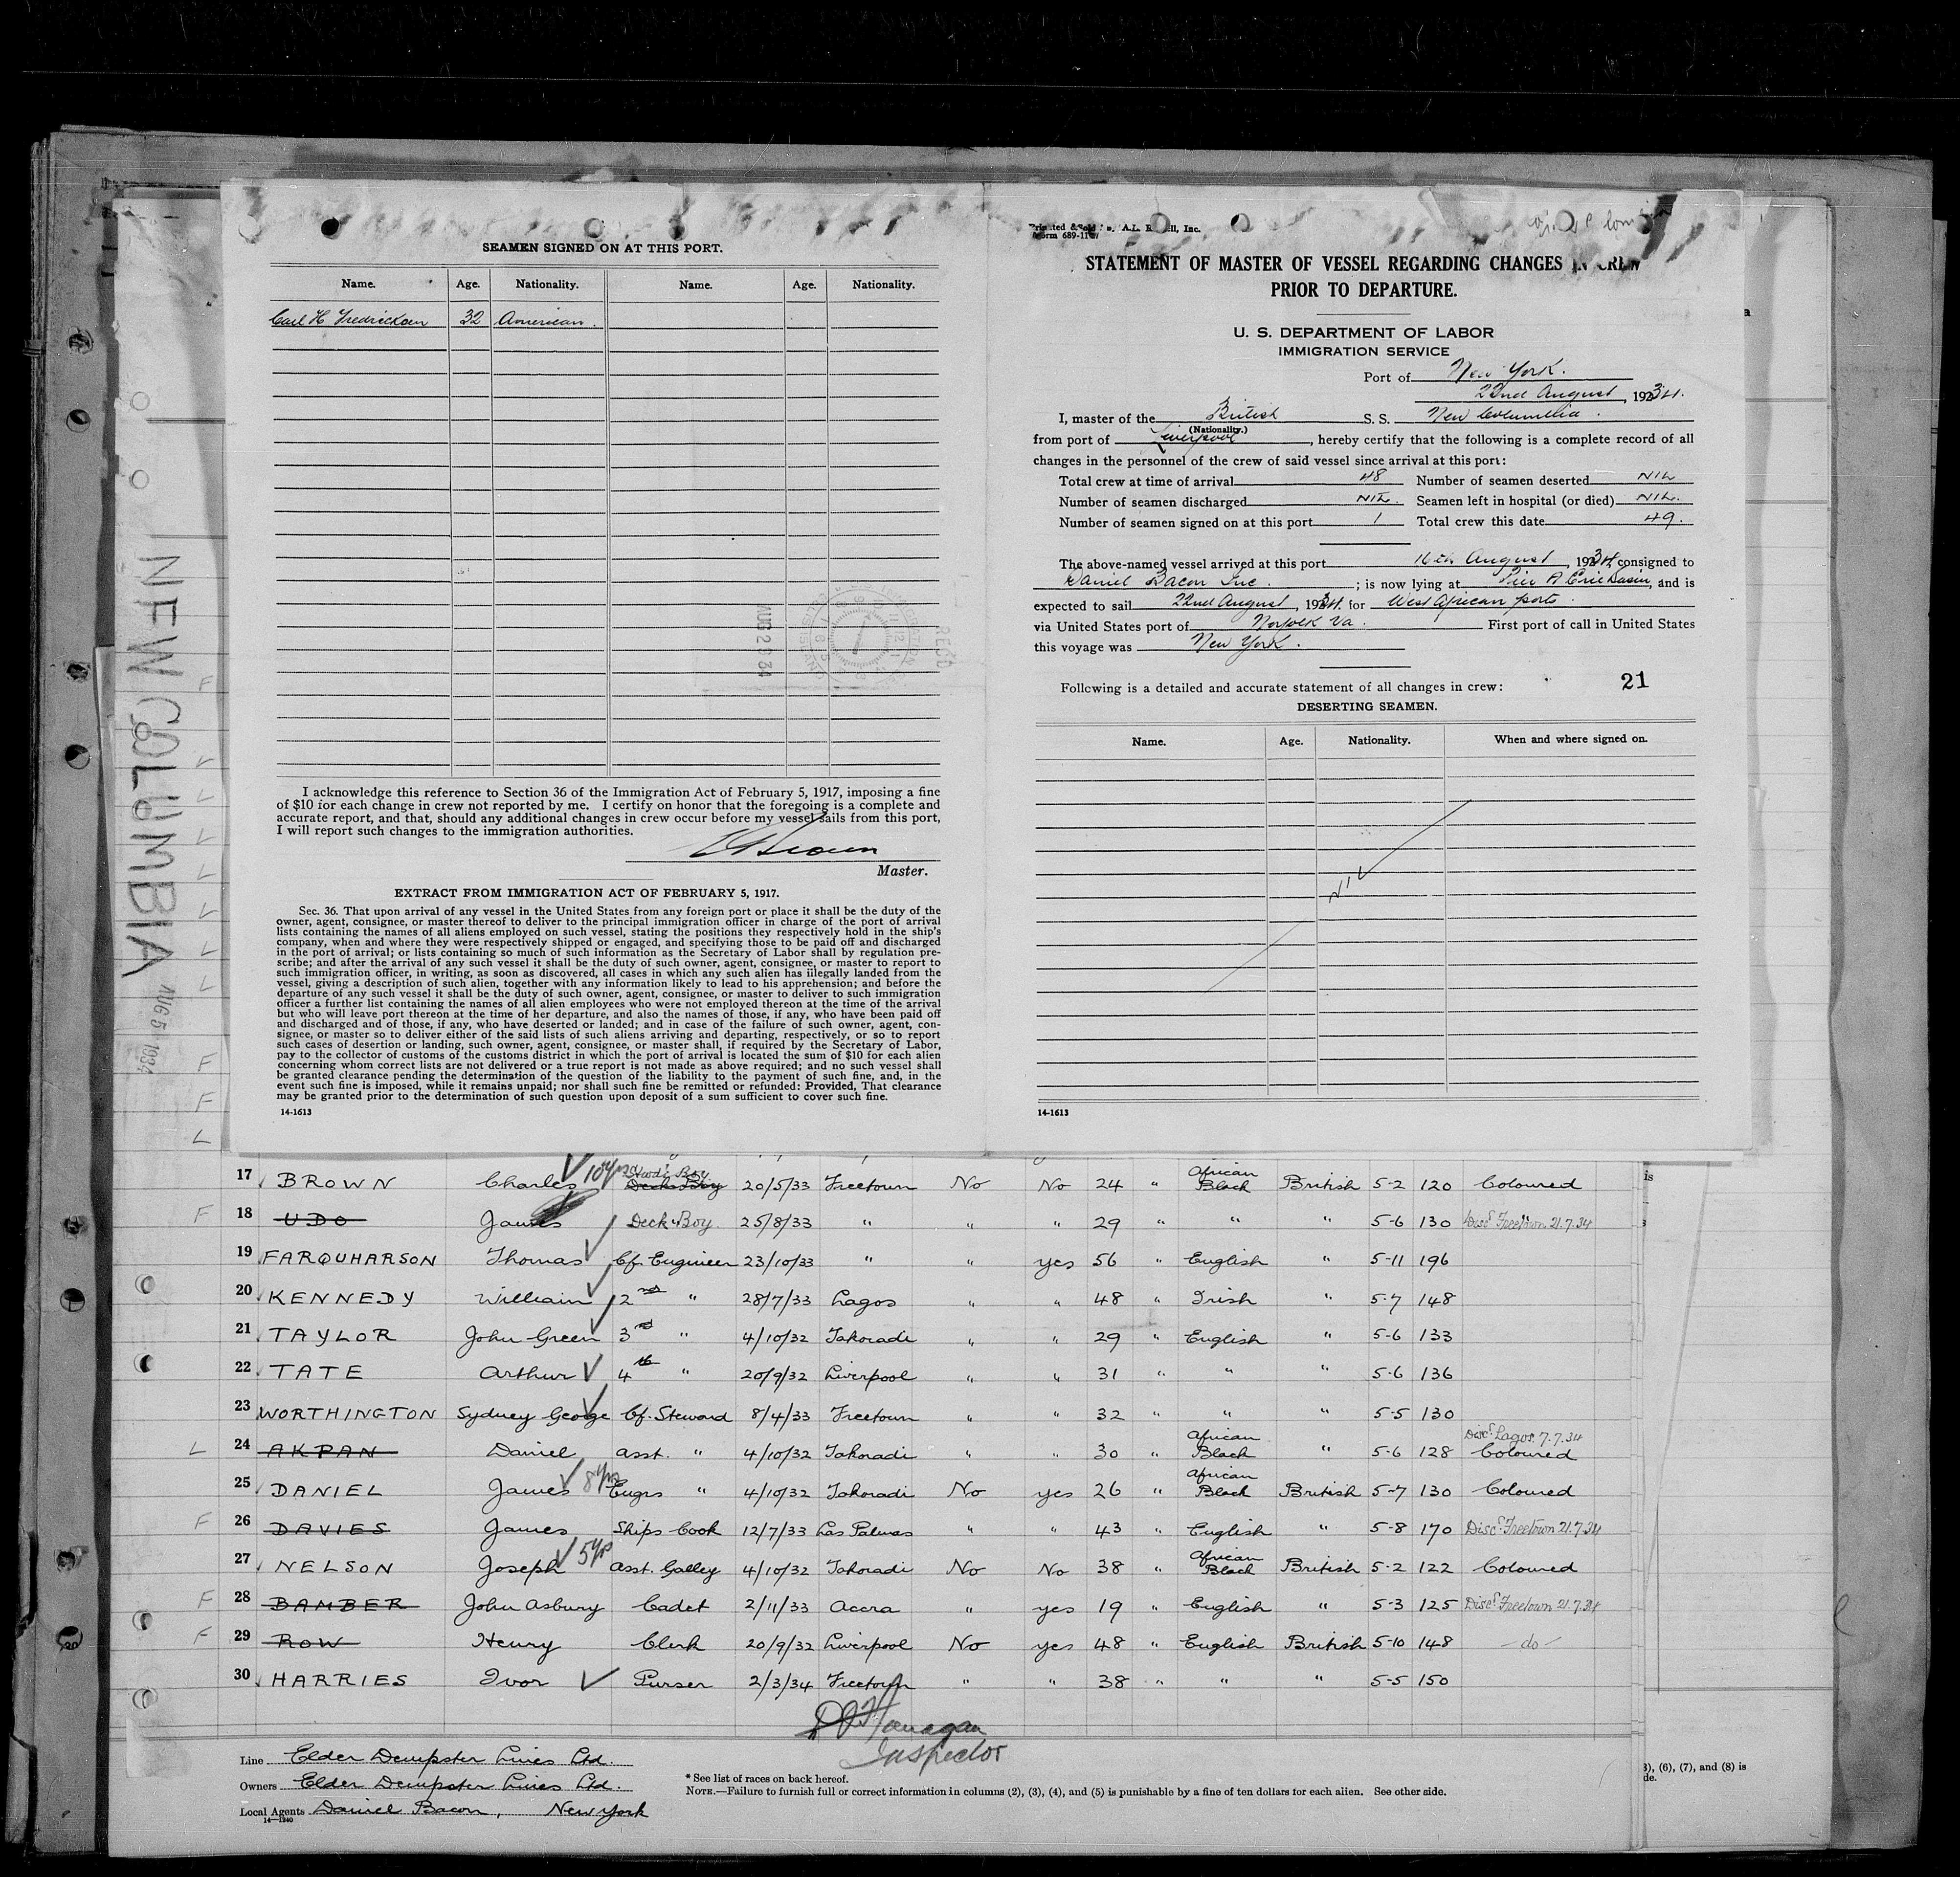 SEAMEN SIGNED ON AT THIS PORT.
Name. Age. Nationality. Name. Age. Nationality.
Carl H Fredricksen 32 American.
I acknowledge this reference to Section 36 of the Immigration Act of February 5, 1917, imposing a fine
of $10 for each change in crew not reported by me. I certify on honor that the foregoing is a complete and
accurate report, and that, should any additional changes in crew occur before my vessel sails from this port,
I will report such changes to the immigration authorities.
Brown
Master.
EXTRACT FROM IMMIGRATION ACT OF FEBRUARY 5, 1917.
Sec. 36. That upon arrival of any vessel in the United States from any foreign port or place it shall be the duty of the
owner, agent, consignee, or master thereof to deliver to the principal immigration officer in charge of the port of arrival
lists containing the names of all aliens employed on such vessel, stating the positions they respectively hold in the ship's
company, when and where they were respectively shipped or engaged, and specifying those to be paid off and discharged
in the port of arrival; or lists containing so much of such information as the Secretary of Labor shall by regulation pre-
scribe; and after the arrival of any such vessel it shall be the duty of such owner, agent, consignee, or master to report to
such immigration officer, in writing, as soon as discovered, all cases in which any such alien has illegally landed from the
vessel, giving a description of such alien, together with any information likely to lead to his apprehension; and before the
departure of any such vessel it shall be the duty of such owner, agent, consignee, or master to deliver to such immigration
officer a further list containing the names of all alien employees who were not employed thereon at the time of the arrival
but who will leave port thereon at the time of her departure, and also the names of those, if any, who have been paid off
and discharged and of those, if any, who have deserted or landed; and in case of the failure of such owner, agent, con-
signee, or master so to deliver either of the said lists of such aliens arriving and departing, respectively, or so to report
such cases of desertion or landing, such owner, agent, consignee, or master shall, if required by the Secretary of Labor,
pay to the collector of customs of the customs district in which the port of arrival is located the sum of $10 for each alien
concerning whom correct lists are not delivered or a true report is not made as above required; and no such vessel shall
be granted clearance pending the determination of the question of the liability to the payment of such fine, and, in the
event such fine is imposed, while it remains unpaid; nor shall such fine be remitted or refunded: Provided, That clearance
may be granted prior to the determination of such question upon deposit of a sum sufficient to cover such fine.
14-1613
AUG 23 34
REC'D
NEW COLUMBIA
AUG 5 1934
Form 689-1107
STATEMENT OF MASTER OF VESSEL REGARDING CHANGES IN CREW
PRIOR TO DEPARTURE.
U. S. DEPARTMENT OF LABOR
IMMIGRATION SERVICE
Port of New York.
22nd August, 1934.
I, master of the British S. S. New Columbia.
(Nationality.)
from port of Liverpool, hereby certify that the following is a complete record of all
changes in the personnel of the crew of said vessel since arrival at this port:
Total crew at time of arrival 48 Number of seamen deserted NIL
Number of seamen discharged NIL. Seamen left in hospital (or died) NIL.
Number of seamen signed on at this port 1 Total crew this date 49.
The above-named vessel arrived at this port 16th August, 1934, consigned to
Daniel Bacon Inc.; is now lying at Pier A Erie Basin, and is
expected to sail 22nd August, 1934. for West African ports.
via United States port of Norfolk Va. First port of call in United States
this voyage was New York.
Following is a detailed and accurate statement of all changes in crew: 21
DESERTING SEAMEN.
Name. Age. Nationality. When and where signed on.
NIL
14-1613
17 BROWN Charles 10 yrs Stwds Boy Deck Boy 20/5/33 Freetown No No 24 " African Black British 5-2 120 Coloured
F 18 UDO James Deck Boy 25/8/33 " " " 29 " " " 5-6 130 Disc. Freetown 21.7.34
19 FARQUHARSON Thomas Cf. Engineer 23/10/33 " " yes 56 " English " 5-11 196
20 KENNEDY William 2nd " 28/7/33 Lagos " " 48 " Irish " 5-7 148
21 TAYLOR John Green 3rd " 4/10/32 Takoradi " " 29 " English " 5-6 133
22 TATE Arthur 4th " 20/9/32 Liverpool " " 31 " " " 5-6 136
23 WORTHINGTON Sydney George Cf. Steward 8/4/33 Freetown " " 32 " " " 5-5 130
L 24 AKPAN Daniel asst. " 4/10/32 Takoradi " " 30 " African Black " 5-6 128 Disc. Lagos 7.7.34 Coloured
25 DANIEL James 8 yrs Engrs " 4/10/32 Takoradi No yes 26 " African Black British 5-7 130 Coloured
F 26 DAVIES James Ships Cook 12/7/33 Las Palmas " " 43 " English " 5-8 170 Disc. Freetown 21.7.34
27 NELSON Joseph 5 yrs asst. Galley 4/10/32 Takoradi No No 38 " African Black British 5-2 122 Coloured
F 28 BAMBER John Asbury Cadet 2/11/33 Accra " yes 19 " English " 5-3 125 Disc. Freetown 21.7.34
F 29 ROW Henry Clerk 20/9/32 Liverpool No yes 48 " English British 5-10 148 - do -
30 HARRIES Ivor Purser 2/3/34 Freetown " " 38 " " " 5-5 150
Inspector
Line Elder Dempster Lines Ltd.
Owners Elder Dempster Lines Ltd.
Local Agents Daniel Bacon, New York
14-1240
* See list of races on back hereof.
NOTE.—Failure to furnish full or correct information in columns (2), (3), (4), and (5) is punishable by a fine of ten dollars for each alien. See other side.
(6), (7), and (8) is
de.